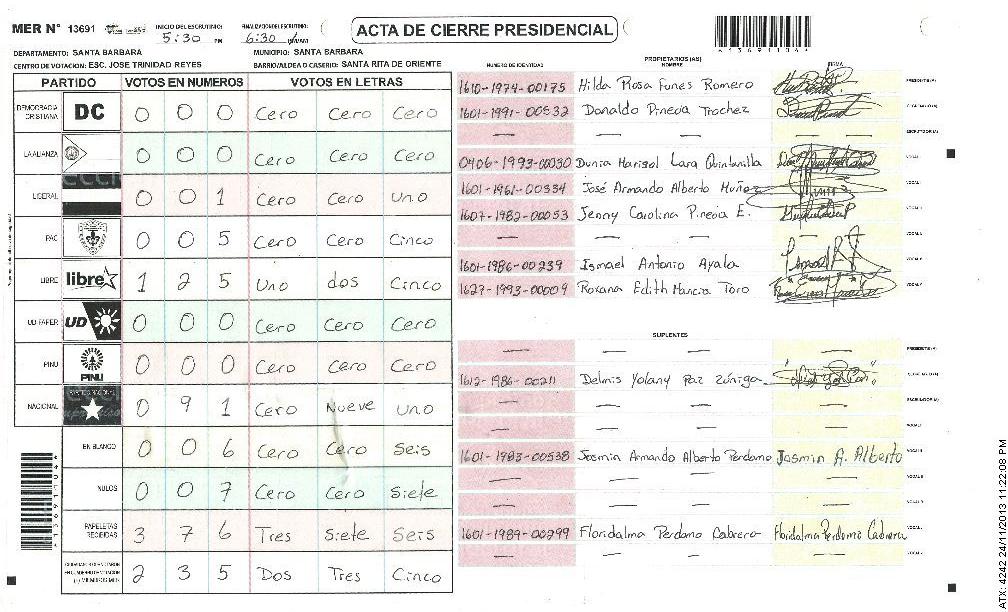 MER Nº 13691 INICIO DEL ESCRUTINIO: 5:30 PM FINALIZACION DEL ESCRUTINIO: 6:30
ACTA DE CIERRE PRESIDENCIAL
DEPARTAMENTO: SANTA BARBARA MUNICIPIO: SANTA BARBARA
CENTRO DE VOTACION: ESC. JOSE TRINIDAD REYES BARRIO/ALDEA O CASERIO: SANTA RITA DE ORIENTE
PARTIDO VOTOS EN NUMEROS VOTOS EN LETRAS
DEMOCRACIA CRISTIANA DC 0 0 0 Cero Cero Cero
LA ALIANZA 0 0 0 Cero Cero Cero
LIBERAL 0 0 1 Cero Cero Uno
PAC 0 0 5 Cero Cero Cinco
LIBRE libre 1 2 5 Uno dos Cinco
UD FAPER UD 0 0 0 Cero Cero Cero
PINU PINU 0 0 0 Cero Cero Cero
NACIONAL 0 9 1 Cero Nueve Uno
EN BLANCO 0 0 6 Cero Cero Seis
NULOS 0 0 7 Cero Cero Siete
PAPELETAS RECIBIDAS 3 7 6 Tres Siete Seis
2 3 5 Dos Tres Cinco
PROPIETARIOS (AS)
NUMERO DE IDENTIDAD NOMBRE FIRMA
1610-1974-00175 Hilda Rosa Funes Romero
1601-1991-00532 Donaldo Pineda Trochez
— — —
0406-1993-00030 Dunia Marisol Lara Quintanilla
1601-1961-00334 José Armando Alberto Muñoz
1607-1982-00053 Jenny Carolina Pineda E.
— — —
1601-1986-00239 Ismael Antonio Ayala
1627-1993-00009 Roxana Edith Mancia Toro
SUPLENTES
— — — —
1612-1986-00211 Delmis Yolany Paz Zúniga
— — — —
— — — —
1601-1983-00538 Josmin Armando Alberto Perdomo Josmin A. Alberto
— — — —
— — — —
1601-1989-00299 Floridalma Perdomo Cabrera Floridalma Perdomo Cabrera
— — — —
ATX: 4242 24/11/2013 11:22:08 PM